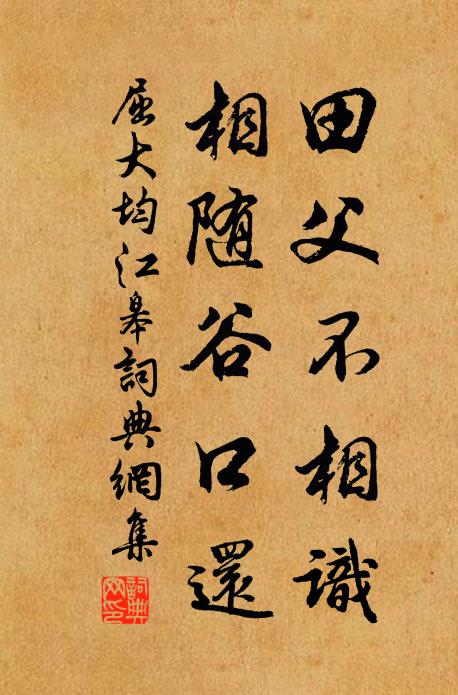 田父不相識
相随谷口還
屈大均江皋詞典網集
詞典
网印